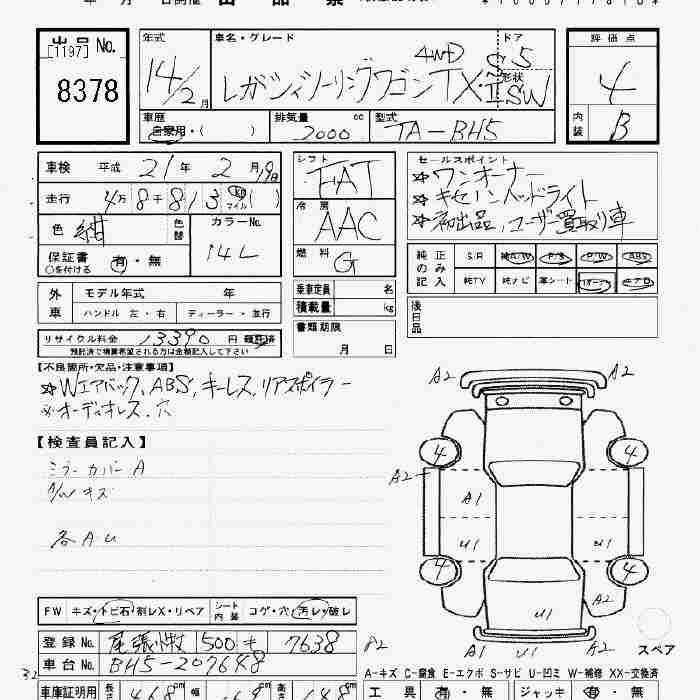 出品No.
[1197]
8378
年式
14/2月
車名・グレード
レガシィツーリングワゴンTX-S
4WD
ドア
5
形状
SW
評価点
4
内装
B
車歴
自家用・( )
排気量 cc
2000
型式
TA-BH5
車検 平成 21年 2月19日
走行 4万8千813 km マイル ( )
色 紺
色替
カラーNo.
14L
保証書 有・無
○を付ける
シフト
FAT
冷房
AAC
燃料
G
セールスポイント
☆ワンオーナー
☆キセノンヘッドライト
☆初出品、ユーザー買取り車
純正のみ記入
S/R 純A/W P/S P/W ABS
純TV 純ナビ 革シート エアB
外車
モデル年式 年
ハンドル 左・右 ディーラー・並行
乗車定員 名
積載量 kg
書類期限
月 日
後日品
リサイクル料金 13390円 預託済
預託済で精算希望される方は金額記入して下さい
【不良箇所・欠品・注意事項】
☆Wエアバック、ABS、キーレス、リアスポイラー
※オーディオレス、穴
【検査員記入】
ミラーカバーA
A/Wキズ
各A.U
A2 A2
4 4
A2
A1
U1 U1
4 4
A2
U1
A2 A1 U1 A2 スペア
FW キズ・トビ石・割レX・リペア
シート内装 コゲ・穴・汚レ・破レ
登録No. 尾張小牧 500 そ 7638
車台No. BH5-207648
A-キズ C-腐食 E-エクボ S-サビ U-凹ミ W-補修 XX-交換済
車庫証明用 長さ 468cm
工具 有・無 ジャッキ 有・無